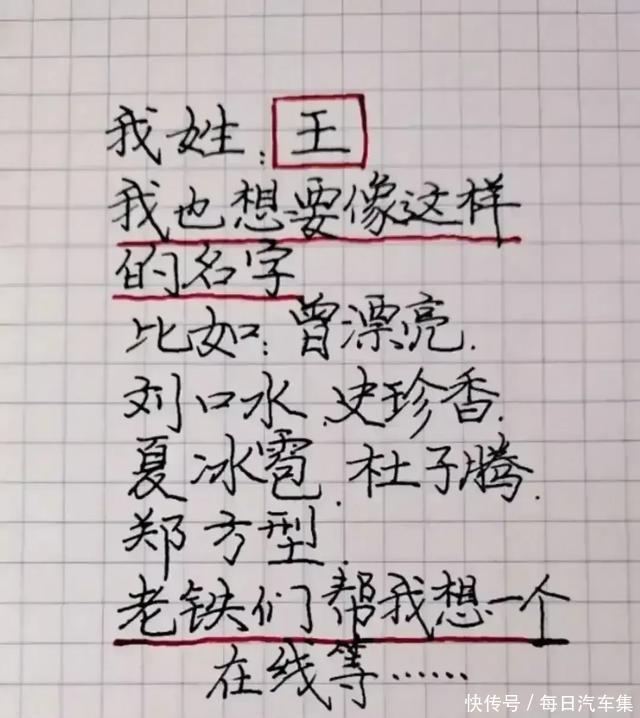 我姓：王
我也想要像这样
的名字
比如：曾漂亮.
刘口水.史珍香.
夏冰雹.杜子腾.
郑方型.
老铁们帮我想一个
在线等……
快传号／每日汽车集